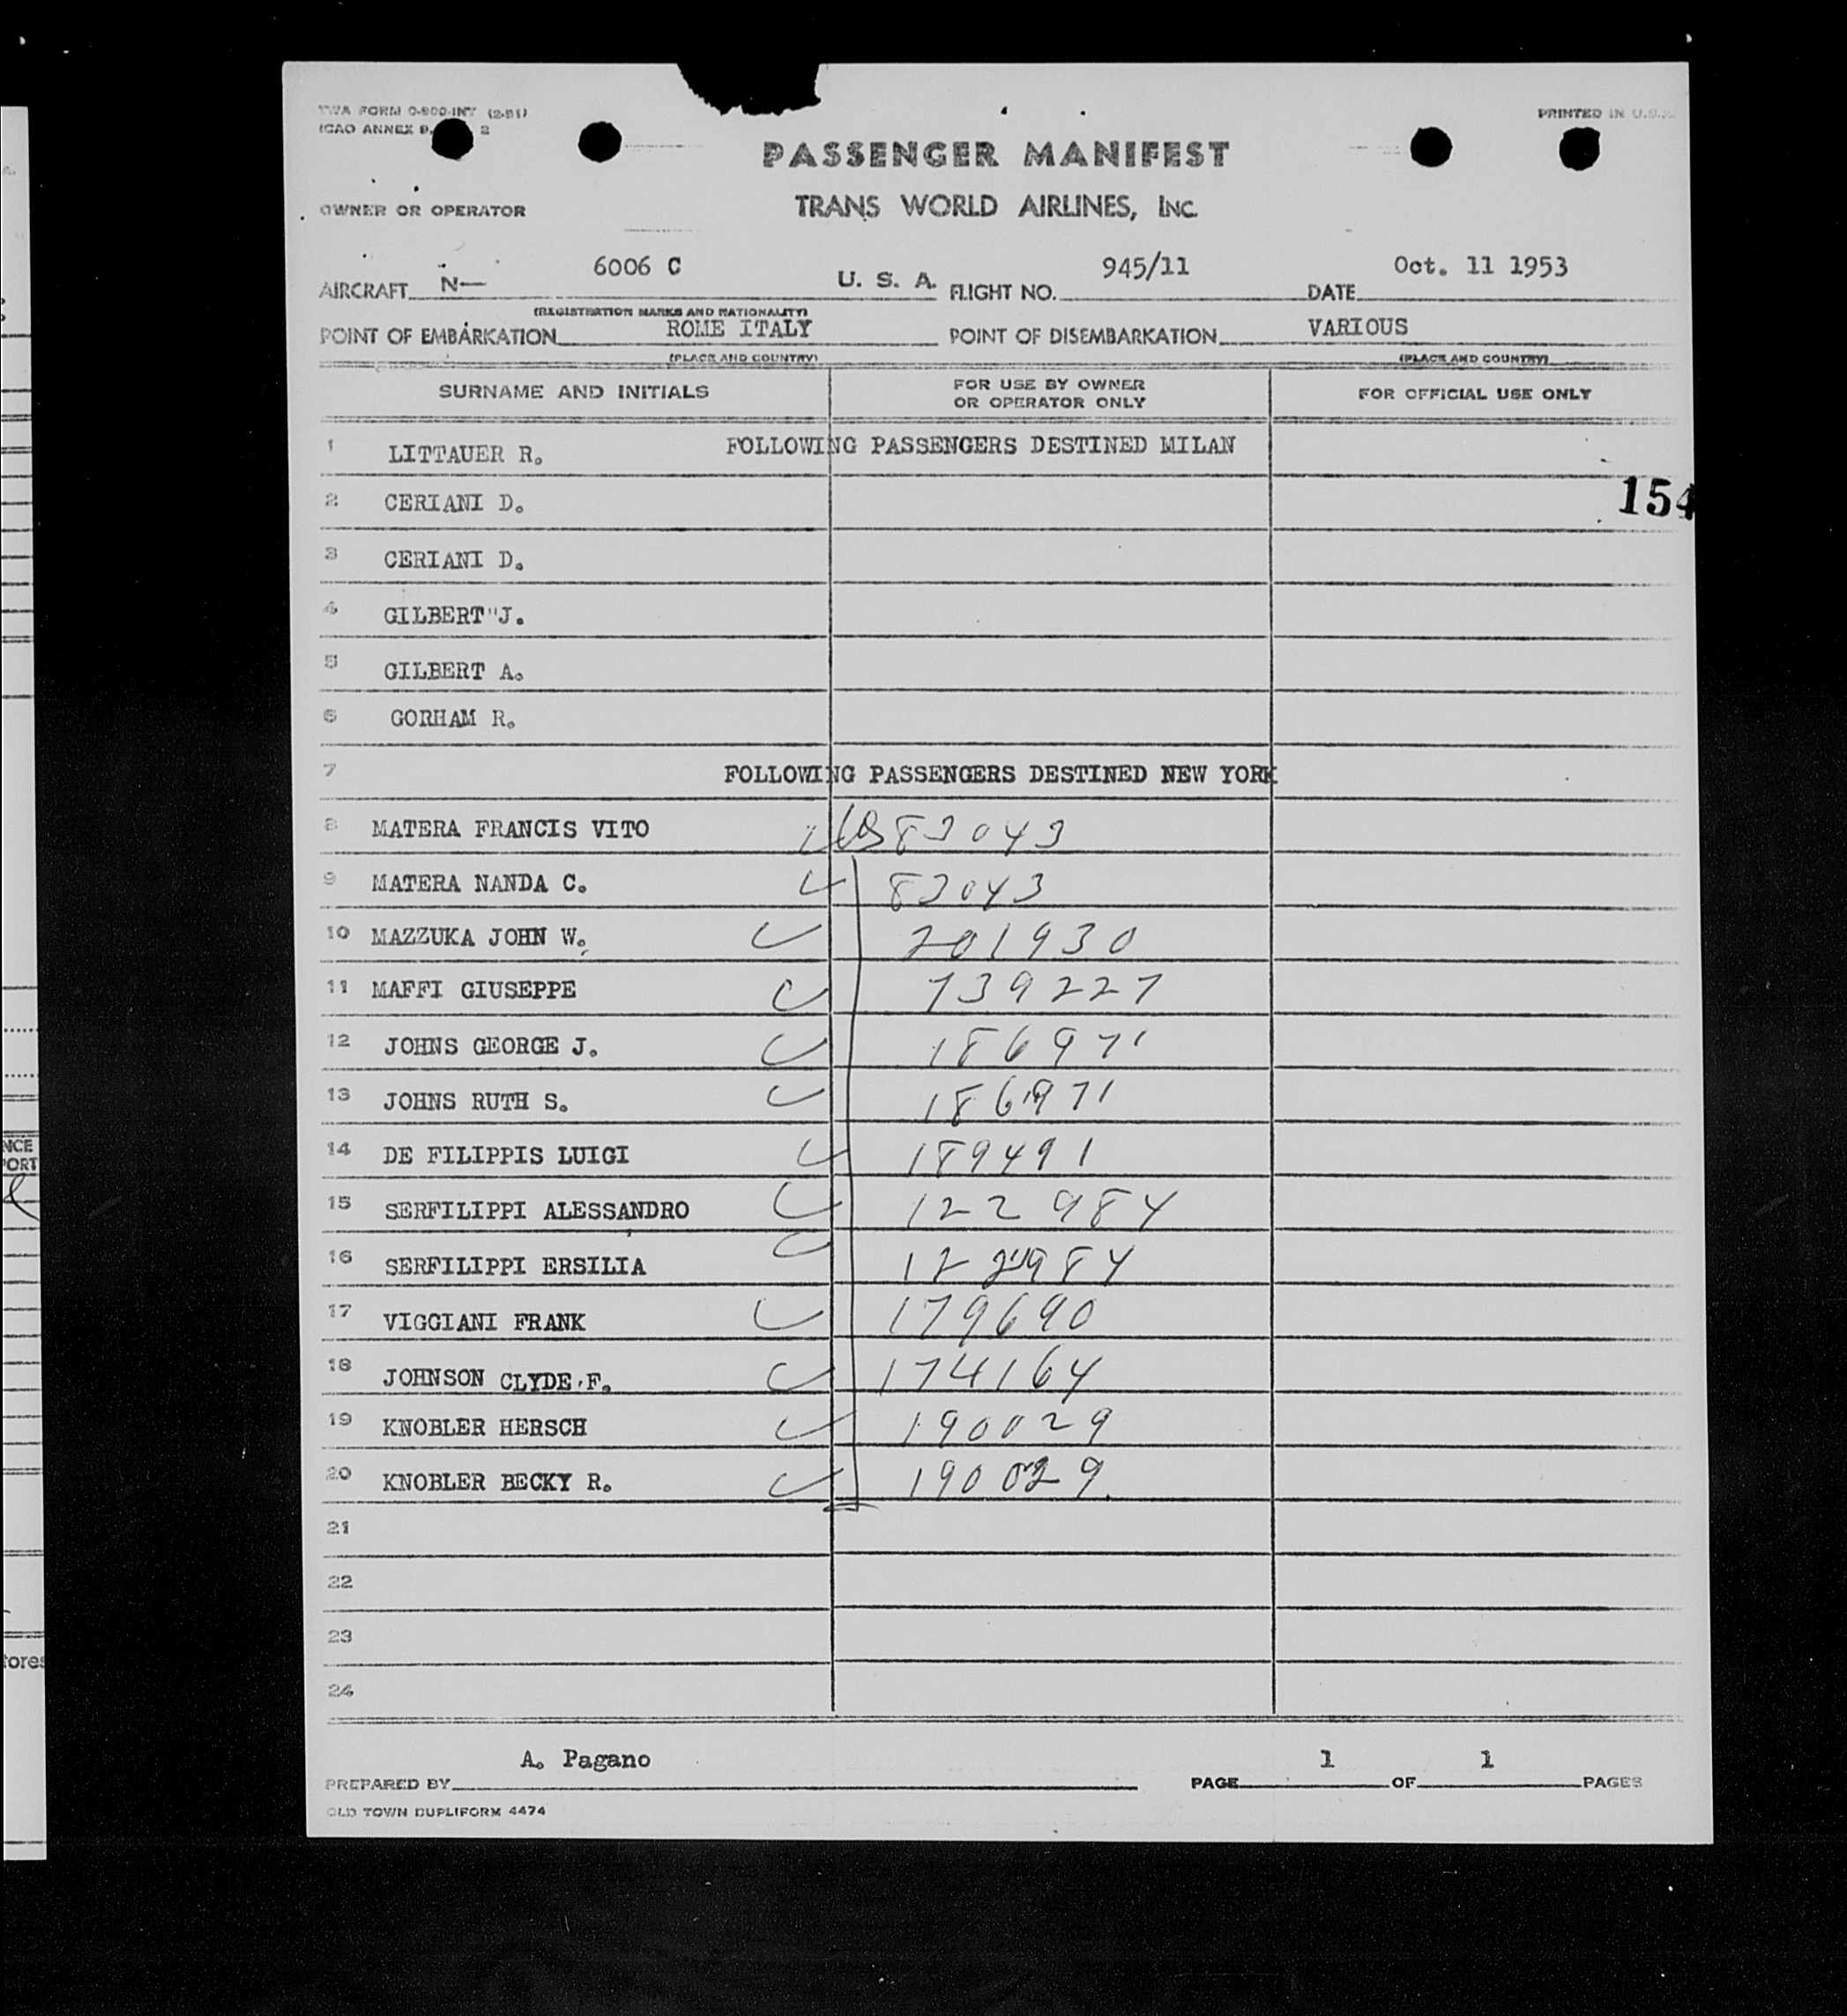 TWA FORM 0-800-INT (2-51)
ICAO ANNEX 9, 2
PRINTED IN U.S.A.
PASSENGER MANIFEST
OWNER OR OPERATOR
TRANS WORLD AIRLINES, INC.
AIRCRAFT N— 6006 C U. S. A. FLIGHT NO. 945/11 DATE Oct. 11 1953
(REGISTRATION MARKS AND NATIONALITY)
POINT OF EMBARKATION ROME ITALY POINT OF DISEMBARKATION VARIOUS
(PLACE AND COUNTRY) (PLACE AND COUNTRY)
SURNAME AND INITIALS FOR USE BY OWNER OR OPERATOR ONLY FOR OFFICIAL USE ONLY
1 LITTAUER R. FOLLOWING PASSENGERS DESTINED MILAN
154
2 CERIANI D.
3 CERIANI D.
4 GILBERT"J.
5 GILBERT A.
6 GORHAM R.
7 FOLLOWING PASSENGERS DESTINED NEW YORK
8 MATERA FRANCIS VITO 83043
9 MATERA NANDA C. 83043
10 MAZZUKA JOHN W. 201930
11 MAFFI GIUSEPPE 739227
12 JOHNS GEORGE J. 186971
13 JOHNS RUTH S. 186971
14 DE FILIPPIS LUIGI 189491
15 SERFILIPPI ALESSANDRO 122984
16 SERFILIPPI ERSILIA 122984
17 VIGGIANI FRANK 179690
18 JOHNSON CLYDE F. 174164
19 KNOBLER HERSCH 190029
20 KNOBLER BECKY R. 190029
21
22
23
24
PREPARED BY A. Pagano PAGE 1 OF 1 PAGES
OLD TOWN DUPLIFORM 4474
NCE
PORT
tores